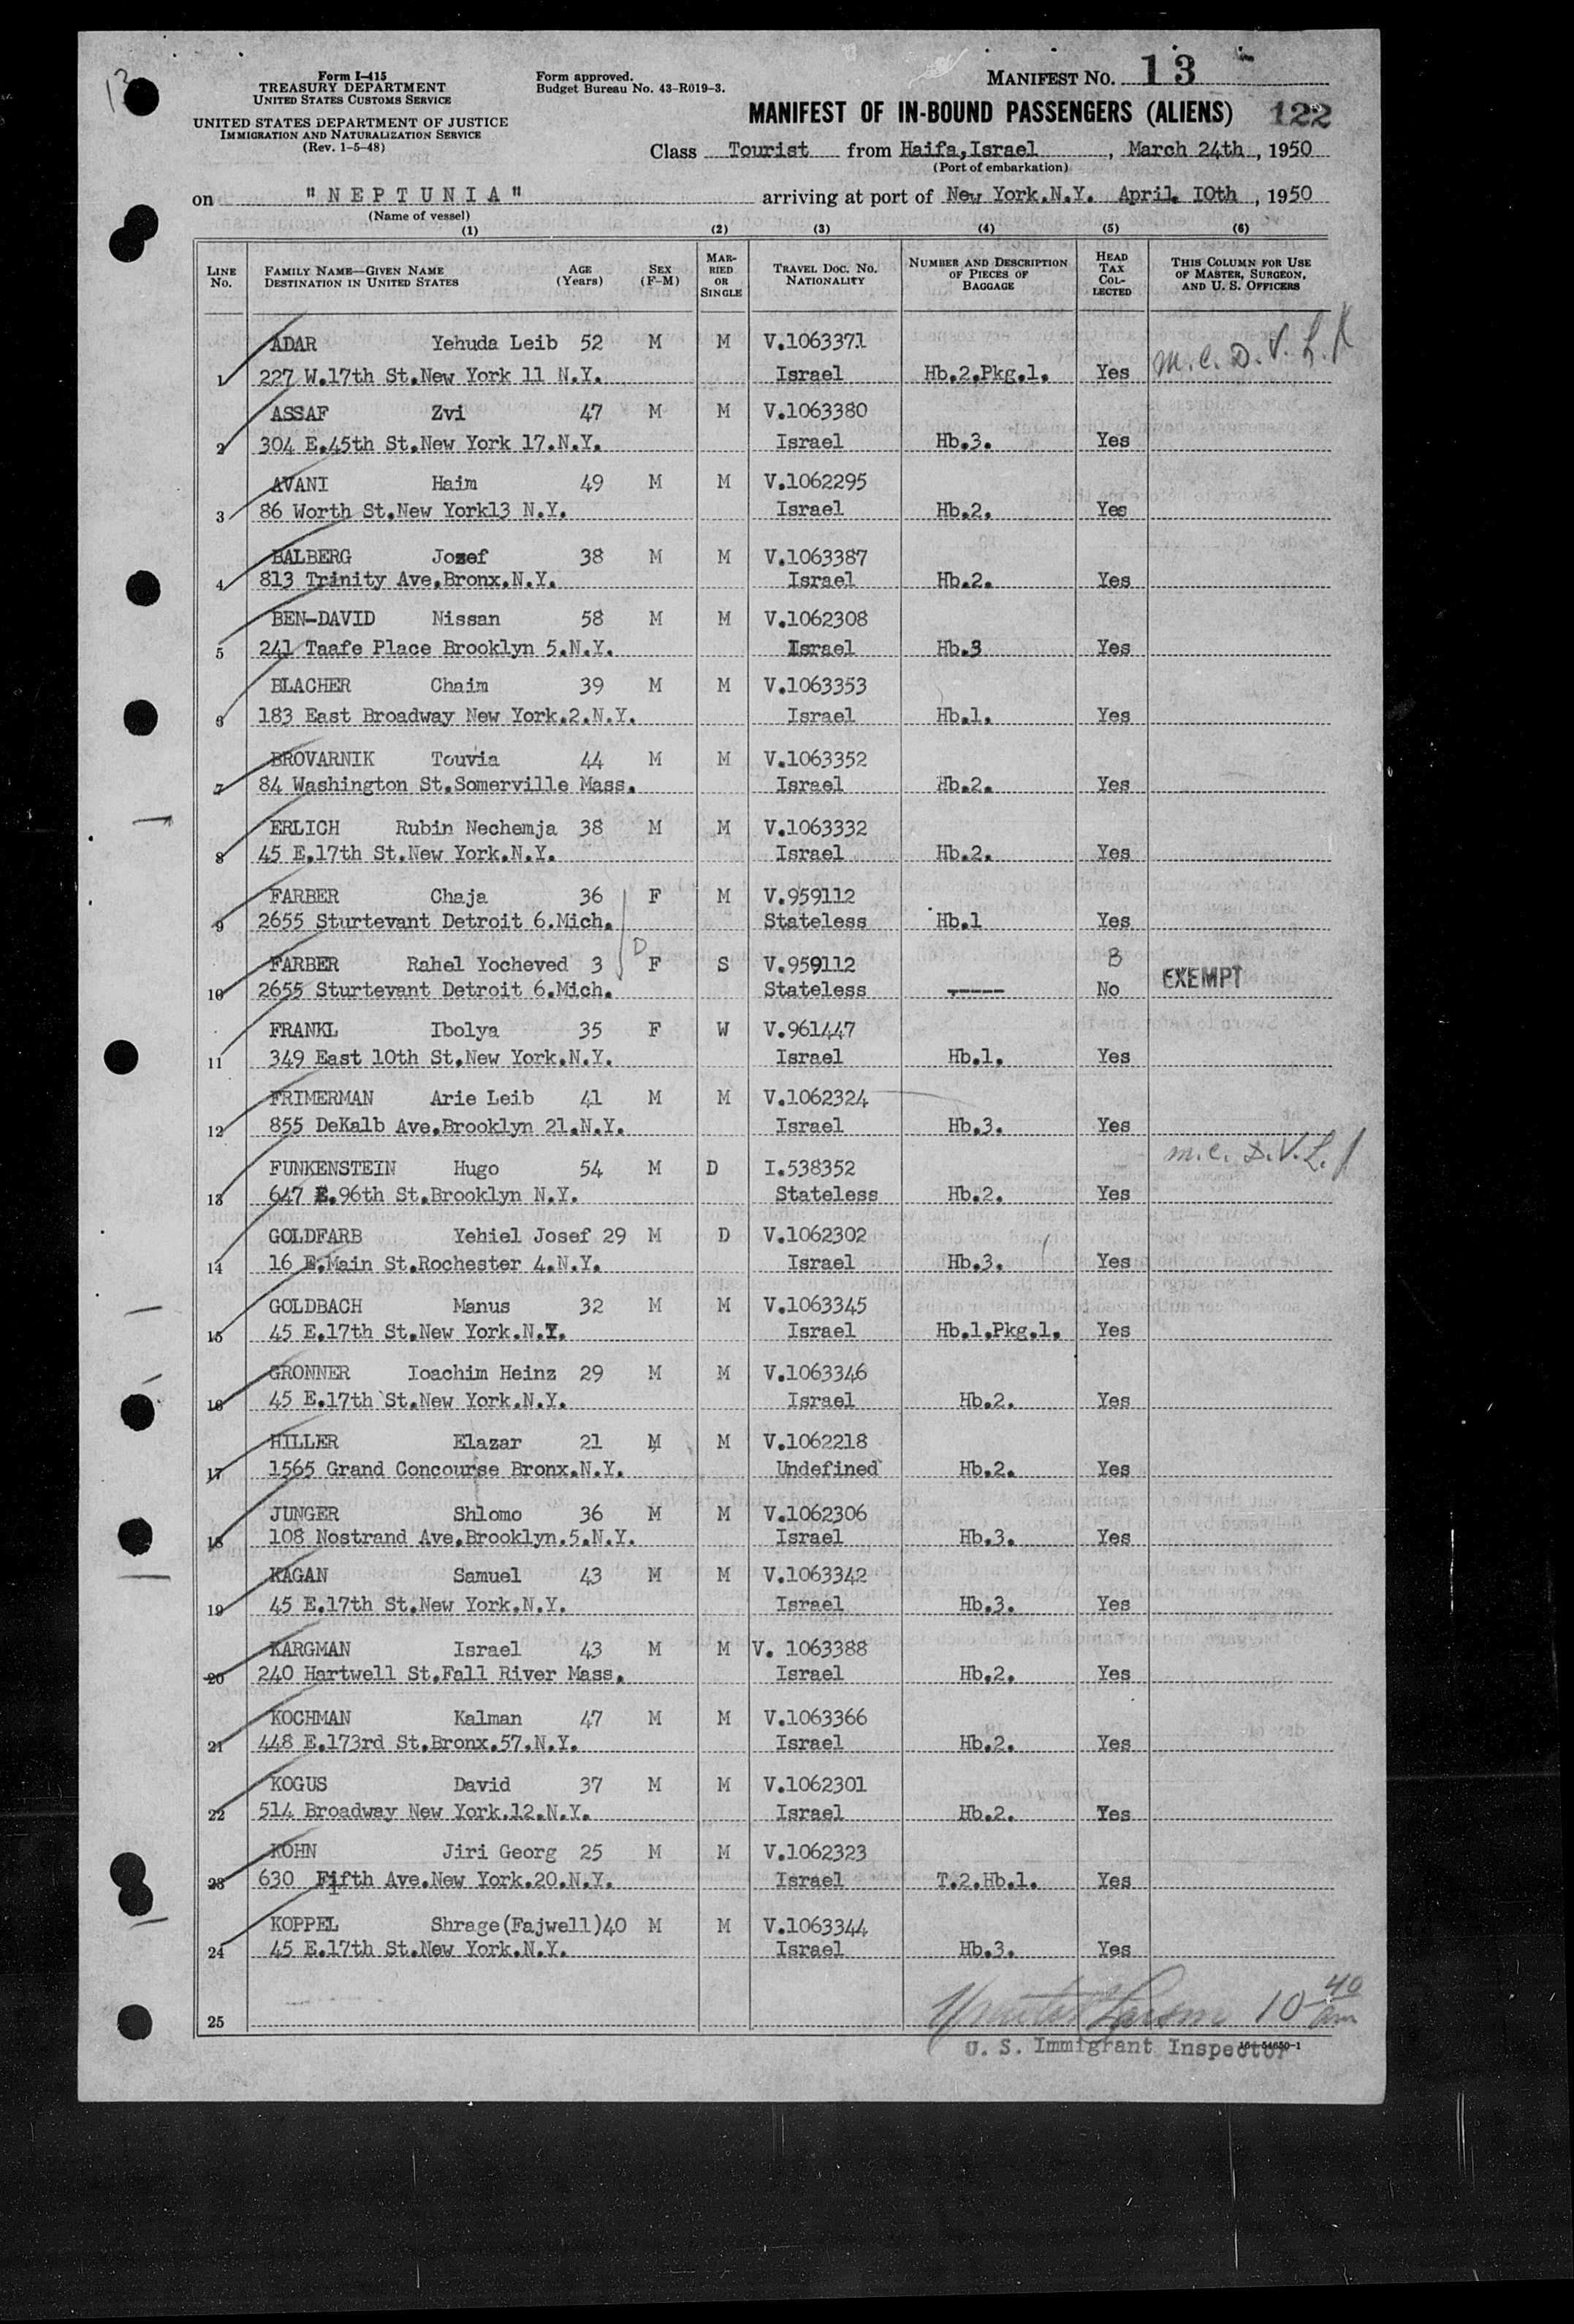 13
Form I-415
TREASURY DEPARTMENT
UNITED STATES CUSTOMS SERVICE
UNITED STATES DEPARTMENT OF JUSTICE
IMMIGRATION AND NATURALIZATION SERVICE
(Rev. 1-5-48)
Form approved.
Budget Bureau No. 43-R019-3.
MANIFEST NO. 13
MANIFEST OF IN-BOUND PASSENGERS (ALIENS) 122
Class Tourist from Haifa,Israel, March 24th, 1950
(Port of embarkation)
on "NEPTUNIA" arriving at port of New York.N.Y. April. 10th, 1950
(Name of vessel)
(1) (2) (3) (4) (5) (6)
LINE NO. FAMILY NAME—GIVEN NAME DESTINATION IN UNITED STATES AGE (Years) SEX (F-M) MARRIED OR SINGLE TRAVEL DOC. NO. NATIONALITY NUMBER AND DESCRIPTION OF PIECES OF BAGGAGE HEAD TAX COLLECTED THIS COLUMN FOR USE OF MASTER, SURGEON, AND U. S. OFFICERS
ADAR Yehuda Leib 52 M M V.1063371 m.c. D.V.L.
1 227 W.17th St.New York 11 N.Y. Israel Hb.2.Pkg.1. Yes
ASSAF Zvi 47 M M V.1063380
2 304 E.45th St.New York 17.N.Y. Israel Hb.3. Yes
AVANI Haim 49 M M V.1062295
3 86 Worth St.New York13 N.Y. Israel Hb.2. Yes
BALBERG Josef 38 M M V.1063387
4 813 Trinity Ave.Bronx.N.Y. Israel Hb.2. Yes
BEN-DAVID Nissan 58 M M V.1062308
5 241 Taafe Place Brooklyn 5.N.Y. Israel Hb.3 Yes
BLACHER Chaim 39 M M V.1063353
6 183 East Broadway New York.2.N.Y. Israel Hb.1. Yes
BROVARNIK Touvia 44 M M V.1063352
7 84 Washington St.Somerville Mass. Israel Hb.2. Yes
ERLICH Rubin Nechemja 38 M M V.1063332
8 45 E.17th St.New York.N.Y. Israel Hb.2. Yes
FARBER Chaja 36 F M V.959112
9 2655 Sturtevant Detroit 6.Mich. Stateless Hb.1 Yes
D
FARBER Rahel Yocheved 3 F S V.959112 B EXEMPT
10 2655 Sturtevant Detroit 6.Mich. Stateless ----- No
FRANKL Ibolya 35 F W V.961447
11 349 East 10th St.New York.N.Y. Israel Hb.1. Yes
FRIMERMAN Arie Leib 41 M M V.1062324
12 855 DeKalb Ave.Brooklyn 21.N.Y. Israel Hb.3. Yes
FUNKENSTEIN Hugo 54 M D I.538352 m.c. D.V.L.
13 647 E.96th St.Brooklyn N.Y. Stateless Hb.2. Yes
GOLDFARB Yehiel Josef 29 M D V.1062302
14 16 E.Main St.Rochester 4.N.Y. Israel Hb.3. Yes
GOLDBACH Manus 32 M M V.1063345
15 45 E.17th St.New York.N.Y. Israel Hb.1.Pkg.1. Yes
GRONNER Ioachim Heinz 29 M M V.1063346
16 45 E.17th St.New York.N.Y. Israel Hb.2. Yes
HILLER Elazar 21 M M V.1062218
17 1565 Grand Concourse Bronx.N.Y. Undefined Hb.2. Yes
JUNGER Shlomo 36 M M V.1062306
18 108 Nostrand Ave.Brooklyn.5.N.Y. Israel Hb.3. Yes
KAGAN Samuel 43 M M V.1063342
19 45 E.17th St.New York.N.Y. Israel Hb.3. Yes
KARGMAN Israel 43 M M V. 1063388
20 240 Hartwell St.Fall River Mass. Israel Hb.2. Yes
KOCHMAN Kalman 47 M M V.1063366
21 448 E.173rd St.Bronx.57.N.Y. Israel Hb.2. Yes
KOGUS David 37 M M V.1062301
22 514 Broadway New York.12.N.Y. Israel Hb.2. Yes
KOHN Jiri Georg 25 M M V.1062323
23 630 Fifth Ave.New York.20.N.Y. Israel T.2.Hb.1. Yes
KOPPEL Shrage(Fajwell)40 M M V.1063344
24 45 E.17th St.New York.N.Y. Israel Hb.3. Yes
25 10 40 am
U. S. Immigrant Inspector